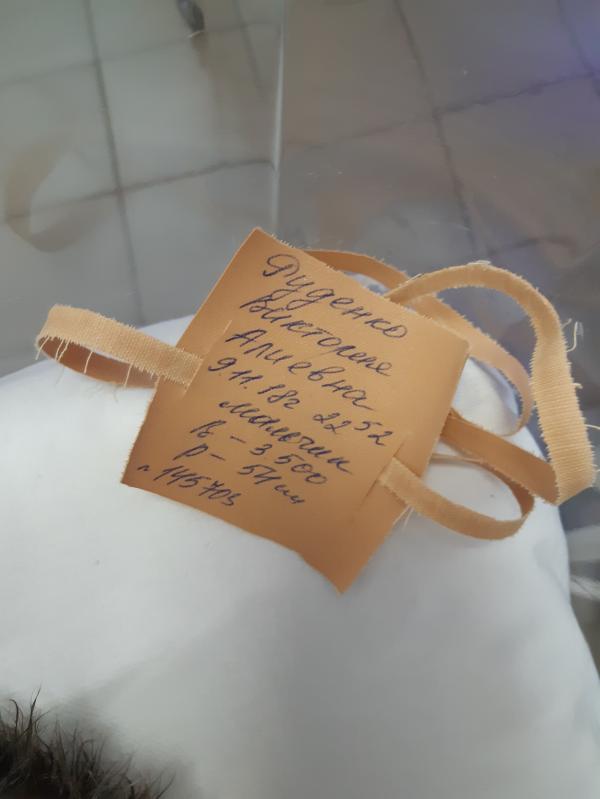 Руденко
Виктория
Алиевна
9.11.18г 22 52
мальчик
В – 3 500
Р – 54 см
л 145703